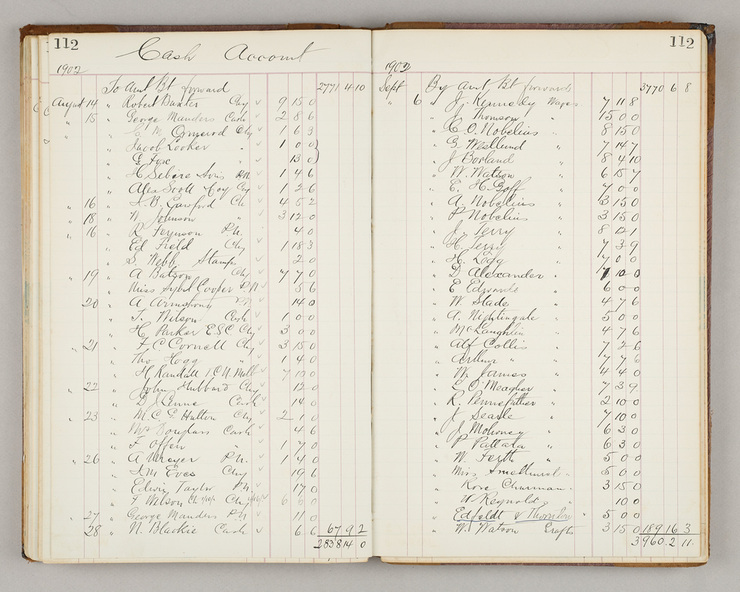 112
Cash Account
1902
To Amt Bt forward 2771 4 10
August 14 " Robert Baxter Chq 9 15 0
" 15 " George Manders Cash 2 8 6
" C. W. Ormerod Chq 1 6 3
" Jacob Looker " 1 0 0
" E Fox " 13 0
" H Sebire Sons P.N. 1 4 6
" Alex Scott Coy Chq 1 2 6
" 16 " Ch 4 5 2
" 18 " W Johnson " 3 12 0
" 16 " R Ferguson P.N. 4 0
" Ed Field Chq 1 18 3
" S. Webb Stamps 2 0
" 19 " A Batson Chq 7 7 0
" Miss Sybil Cooper P.N 5 6
" 20 " A Armstrong P.N 14 0
" T. Wilson Cash 1 0 0
" H Parker ESC Chq 3 0 0
" 21 " F C Cornell Chq 3 15 0
" Tho Hogg " 1 4 0
" H Randall 7 10 0
" 22 " John Hubbard Chq 12 0
" Cash 14 0
" 23 " M C C Hutton Chq 2 1 0
" Mr Douglass Cash 4 6
" F Offer " 1 7 0
" 26 " A Mayer P.N. 1 4 0
" Eves Chq 19 6
" Edwin Taylor P.N. 17 0
" F Wilson Ch
" 27 " George Manders P.N 11 0
" 28 " N. Blackie Cash 6 6 67 9 2
2838 14 0
112
1902
Sept By Amt Bt forward 3770 6 8
" 6 " J. Kennedy Wages 7 11 8
" J. Thomson " 15 0 0
" C. O. Nobelius " 8 15 0
" G. Wellund " 7 14 7
" J Borland " 8 4 10
" W. Watson " 6 15 7
" E. H. Goff " 7 0 0
" A. Nobelius " 3 15 0
" P Nobelius " 3 15 0
" J. Terry " 8
" H. Terry " 7 3 9
" H. Legg " 7 0 0
" D Alexander " 7 10 0
" E Edwards " 6 0 0
" W Slade " 4 7 6
" A. Nightingale " 5 0 0
" McLaughlin " 4 7 6
" Alf Collis " 7 2 6
" Arthur " " 7 7 6
" W. James " 4 4 0
" C. O Meagher " 7 3 9
" R. Pennefather " 2 10 0
" J Searle " 7 10 0
" J. Mahoney " 6 3 0
" P. Pattala " 6 3 0
" W. Ferth " 5 0 0
" Miss Smethurst " 5 0 0
" Rose Chairman " 3 15 0
" W Reynolds " 10 0
" Edfeldt & " 5 0 0
" W. Watson 3 15 0 189 16 3
3960 2 11